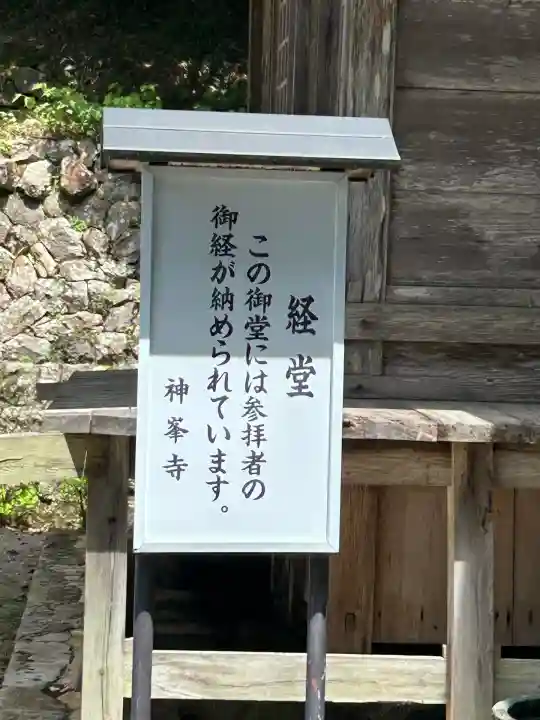 経堂
この御堂には参拝者の
御経が納められています。
神峯寺